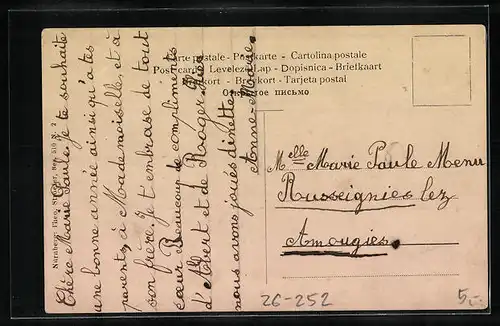 Carte postale - Postkarte - Cartolina postale
Post-card - Levelező-Lap - Dopisnica - Briefkaart
Brefkort - Brevkort - Tarjeta postal
Открытое письмо
Chère Marie Paule, je te souhaite
une bonne année ainsi qu'à tes
parents, à Mademoiselle, et à
son frère, je t'embrasse de tout
cœur. Beaucoup de compliments
d'Albert et de Roger. Hier
nous avons joués dinette
Anne-Marie
Melle Marie Paule Menu
Russeignies lez
Amougies.
Nürnberg: Theo. Stroefer, Ser. 510 N. 2
26-252
5,-